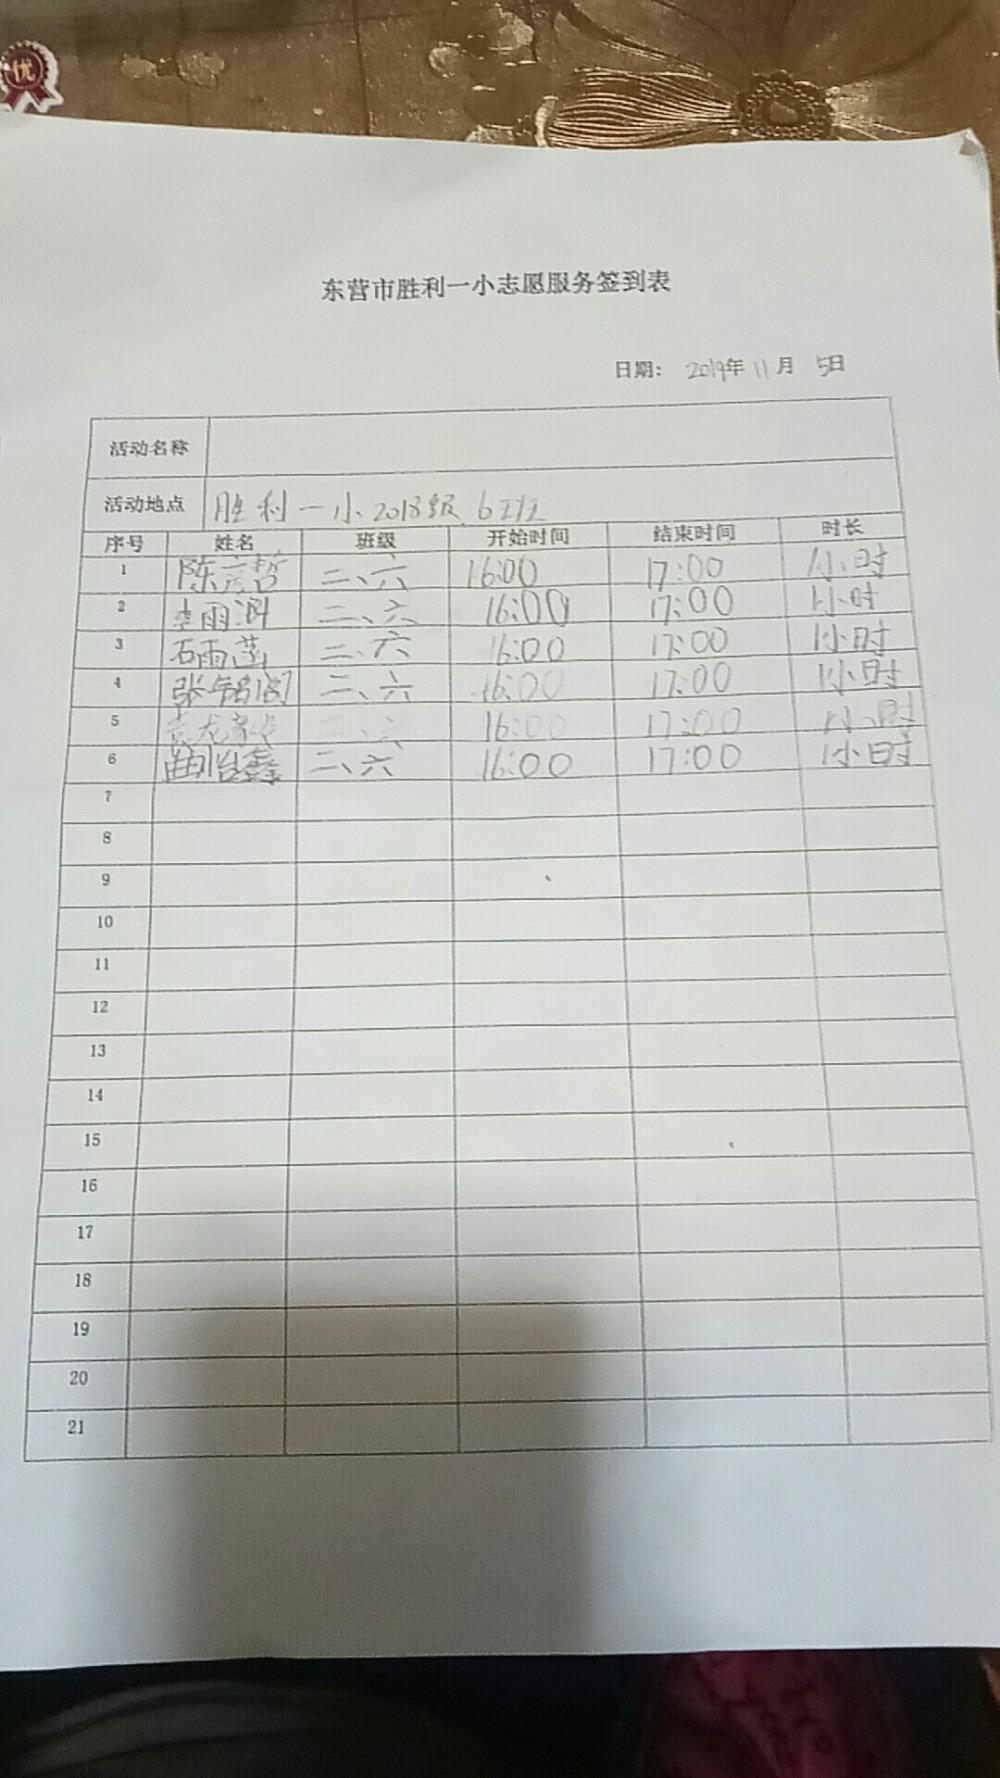 优
东营市胜利一小志愿服务签到表
日期: 2019年11月 5日
活动名称
活动地点 胜利一小2018级、6班
序号 姓名 班级 开始时间 结束时间 时长
1 陈彦哲 二、六 16:00 17:00 1小时
2 李雨 二、六 16:00 17:00 1小时
3 石雨菡 二、六 16:00 17:00 1小时
4 张 二、六 16:00 17:00 1小时
5 袁龙 二、六 16:00 17:00 1小时
6 曲怡鑫 二、六 16:00 17:00 1小时
7
8
9
10
11
12
13
14
15
16
17
18
19
20
21